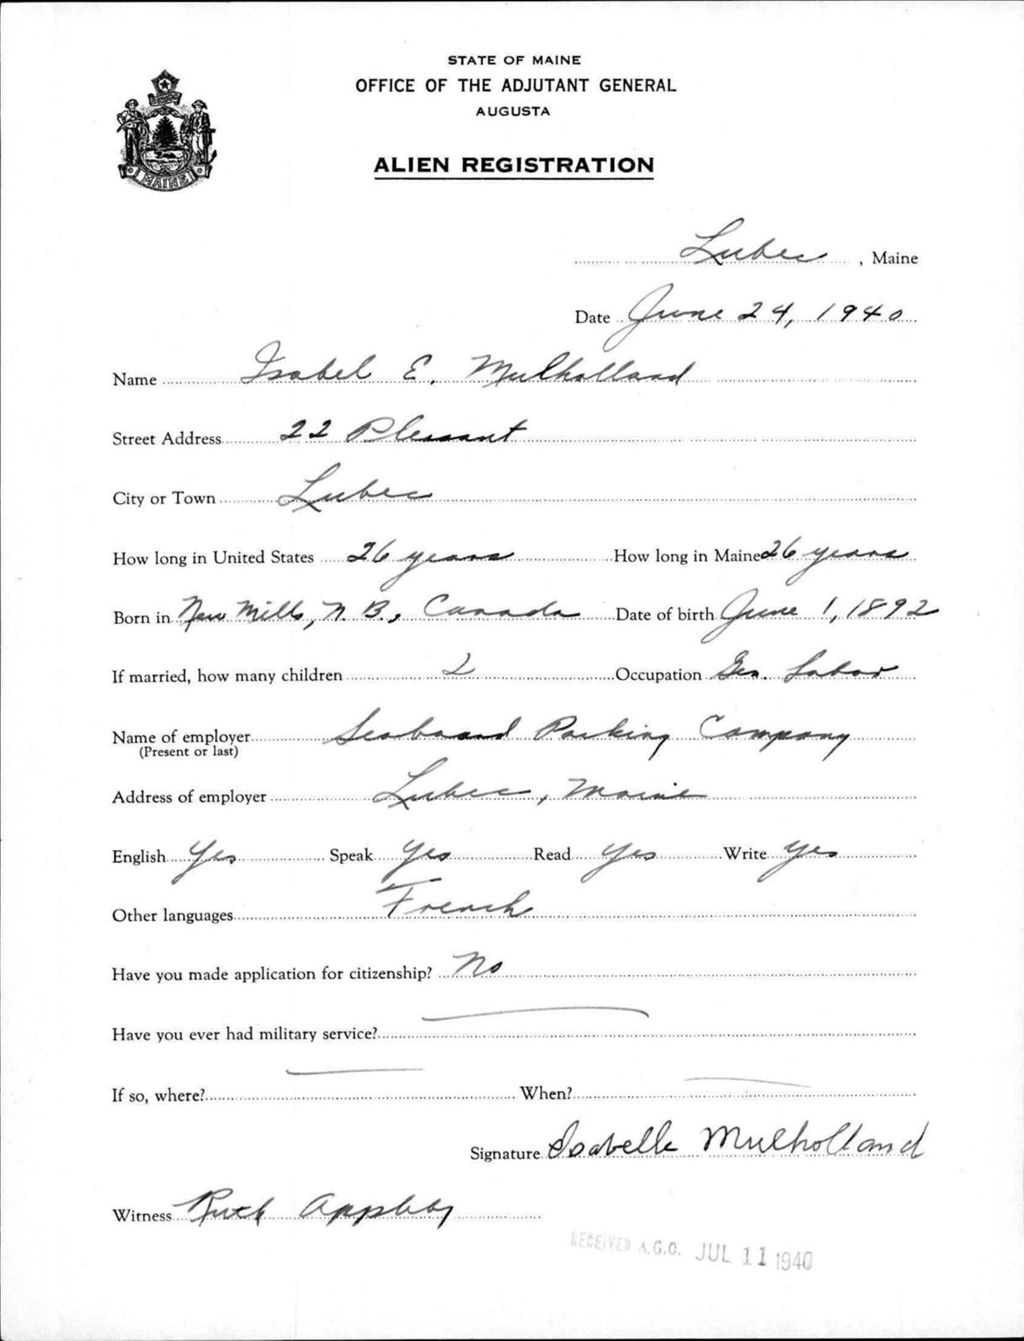 STATE OF MAINE
OFFICE OF THE ADJUTANT GENERAL
AUGUSTA
ALIEN REGISTRATION
MAINE
Lubec, Maine
Date June 24, 1940
Name Isabel E. Mulholland
Street Address 22 Pleasant
City or Town Lubec
How long in United States 26 years How long in Maine 26 years
Born in New Mills, N. B., Canada Date of birth June 1, 1892
If married, how many children 2 Occupation Gen. Labor
Name of employer Seaboard Packing Company
(Present or last)
Address of employer Lubec, Maine
English Yes Speak Yes Read Yes Write Yes
Other languages French
Have you made application for citizenship? No
Have you ever had military service?
If so, where? When?
Signature Isabelle Mulholland
Witness Ruth Appleby
RECEIVED A.G.O. JUL 11 1940